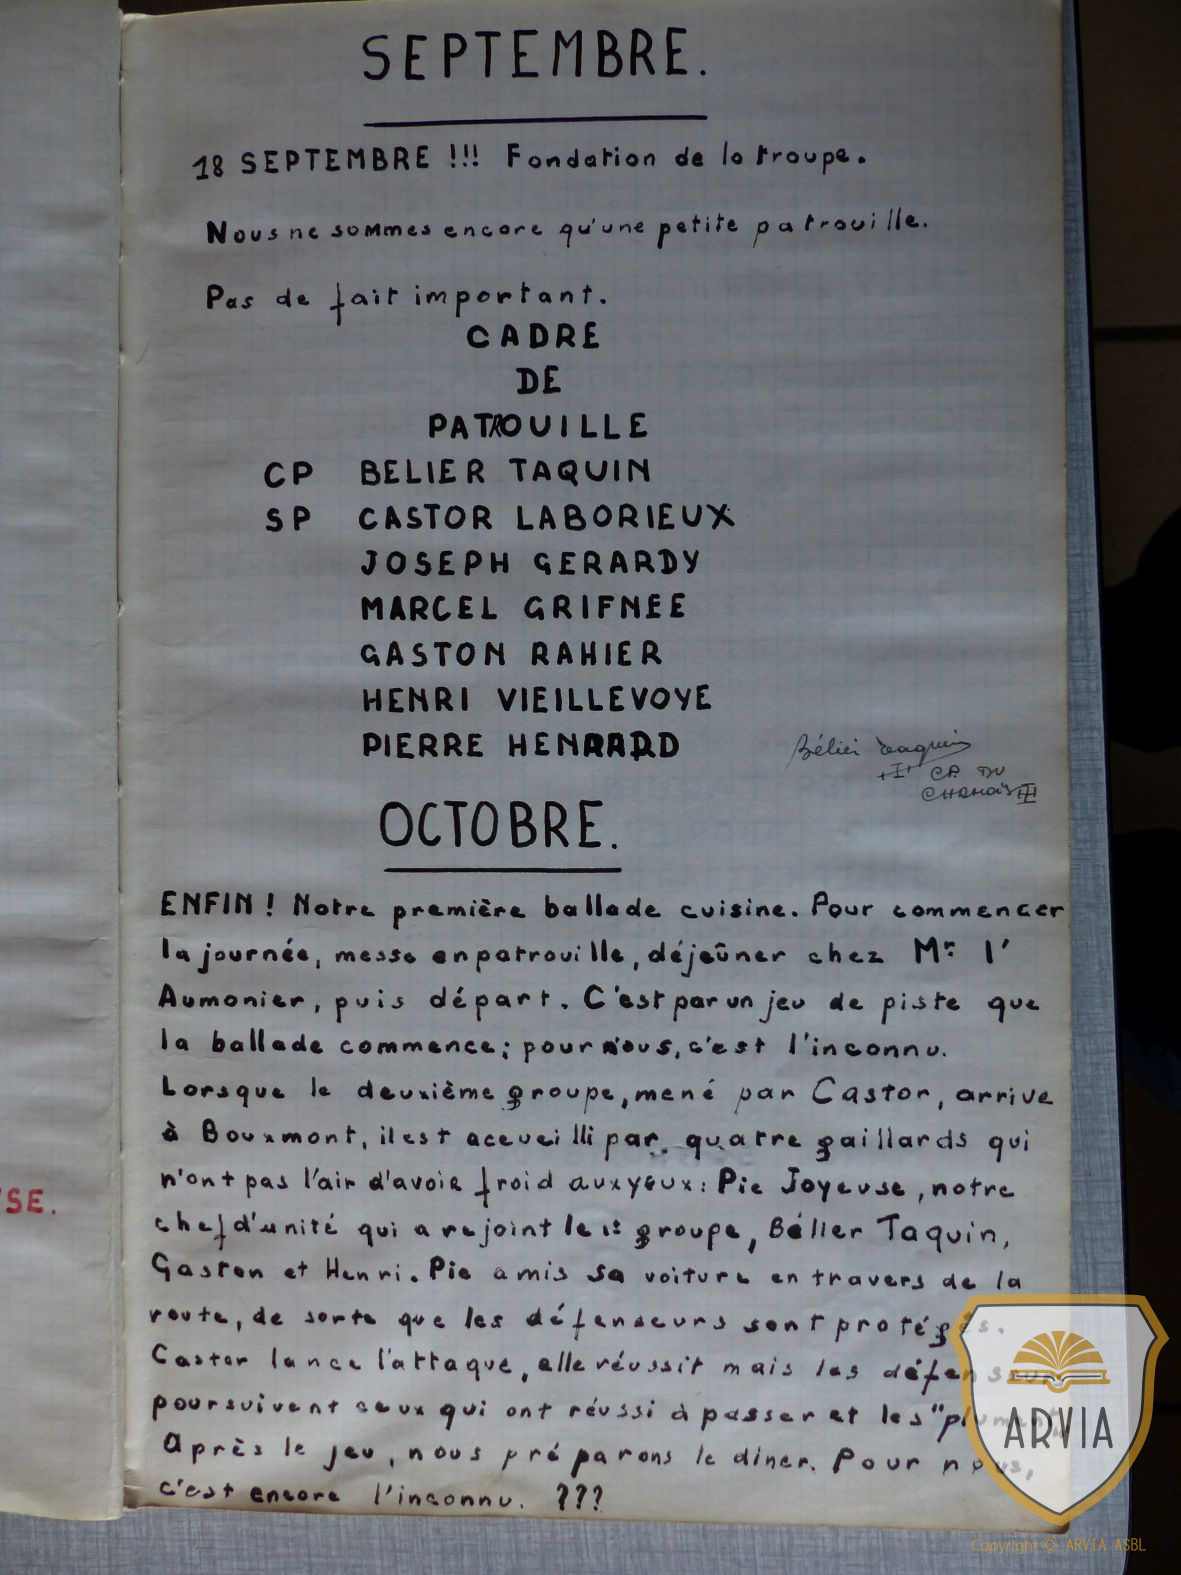 SEPTEMBRE.
18 SEPTEMBRE !!! Fondation de la troupe.
Nous ne sommes encore qu'une petite patrouille.
Pas de fait important.
CADRE
DE
PATROUILLE
CP BELIER TAQUIN
SP CASTOR LABORIEUX
JOSEPH GERARDY
MARCEL GRIFNEE
GASTON RAHIER
HENRI VIEILLEVOYE
PIERRE HENRARD
Bélier taquin
CP DU
CHAMOIS
OCTOBRE.
ENFIN ! Notre première ballade cuisine. Pour commencer
la journée, messe en patrouille, déjeûner chez Mr l'
Aumonier, puis départ. C'est par un jeu de piste que
la ballade commence; pour nous, c'est l'inconnu.
Lorsque le deuxième groupe, mené par Castor, arrive
à Bouxmont, il est acceuilli par quatre gaillards qui
n'ont pas l'air d'avoir froid aux yeux: Pie Joyeuse, notre
chef d'unité qui a rejoint le 1er groupe, Bélier Taquin,
Gaston et Henri. Pie a mis sa voiture en travers de la
route, de sorte que les défenseurs sont protégés.
Castor lance l'attaque, elle réussit mais les défenseurs
poursuivent ceux qui ont réussi à passer et les "plument"
Après le jeu, nous préparons le diner. Pour nous,
c'est encore l'inconnu. ???
SE.
ARVIA
Copyright © ARVIA ASBL